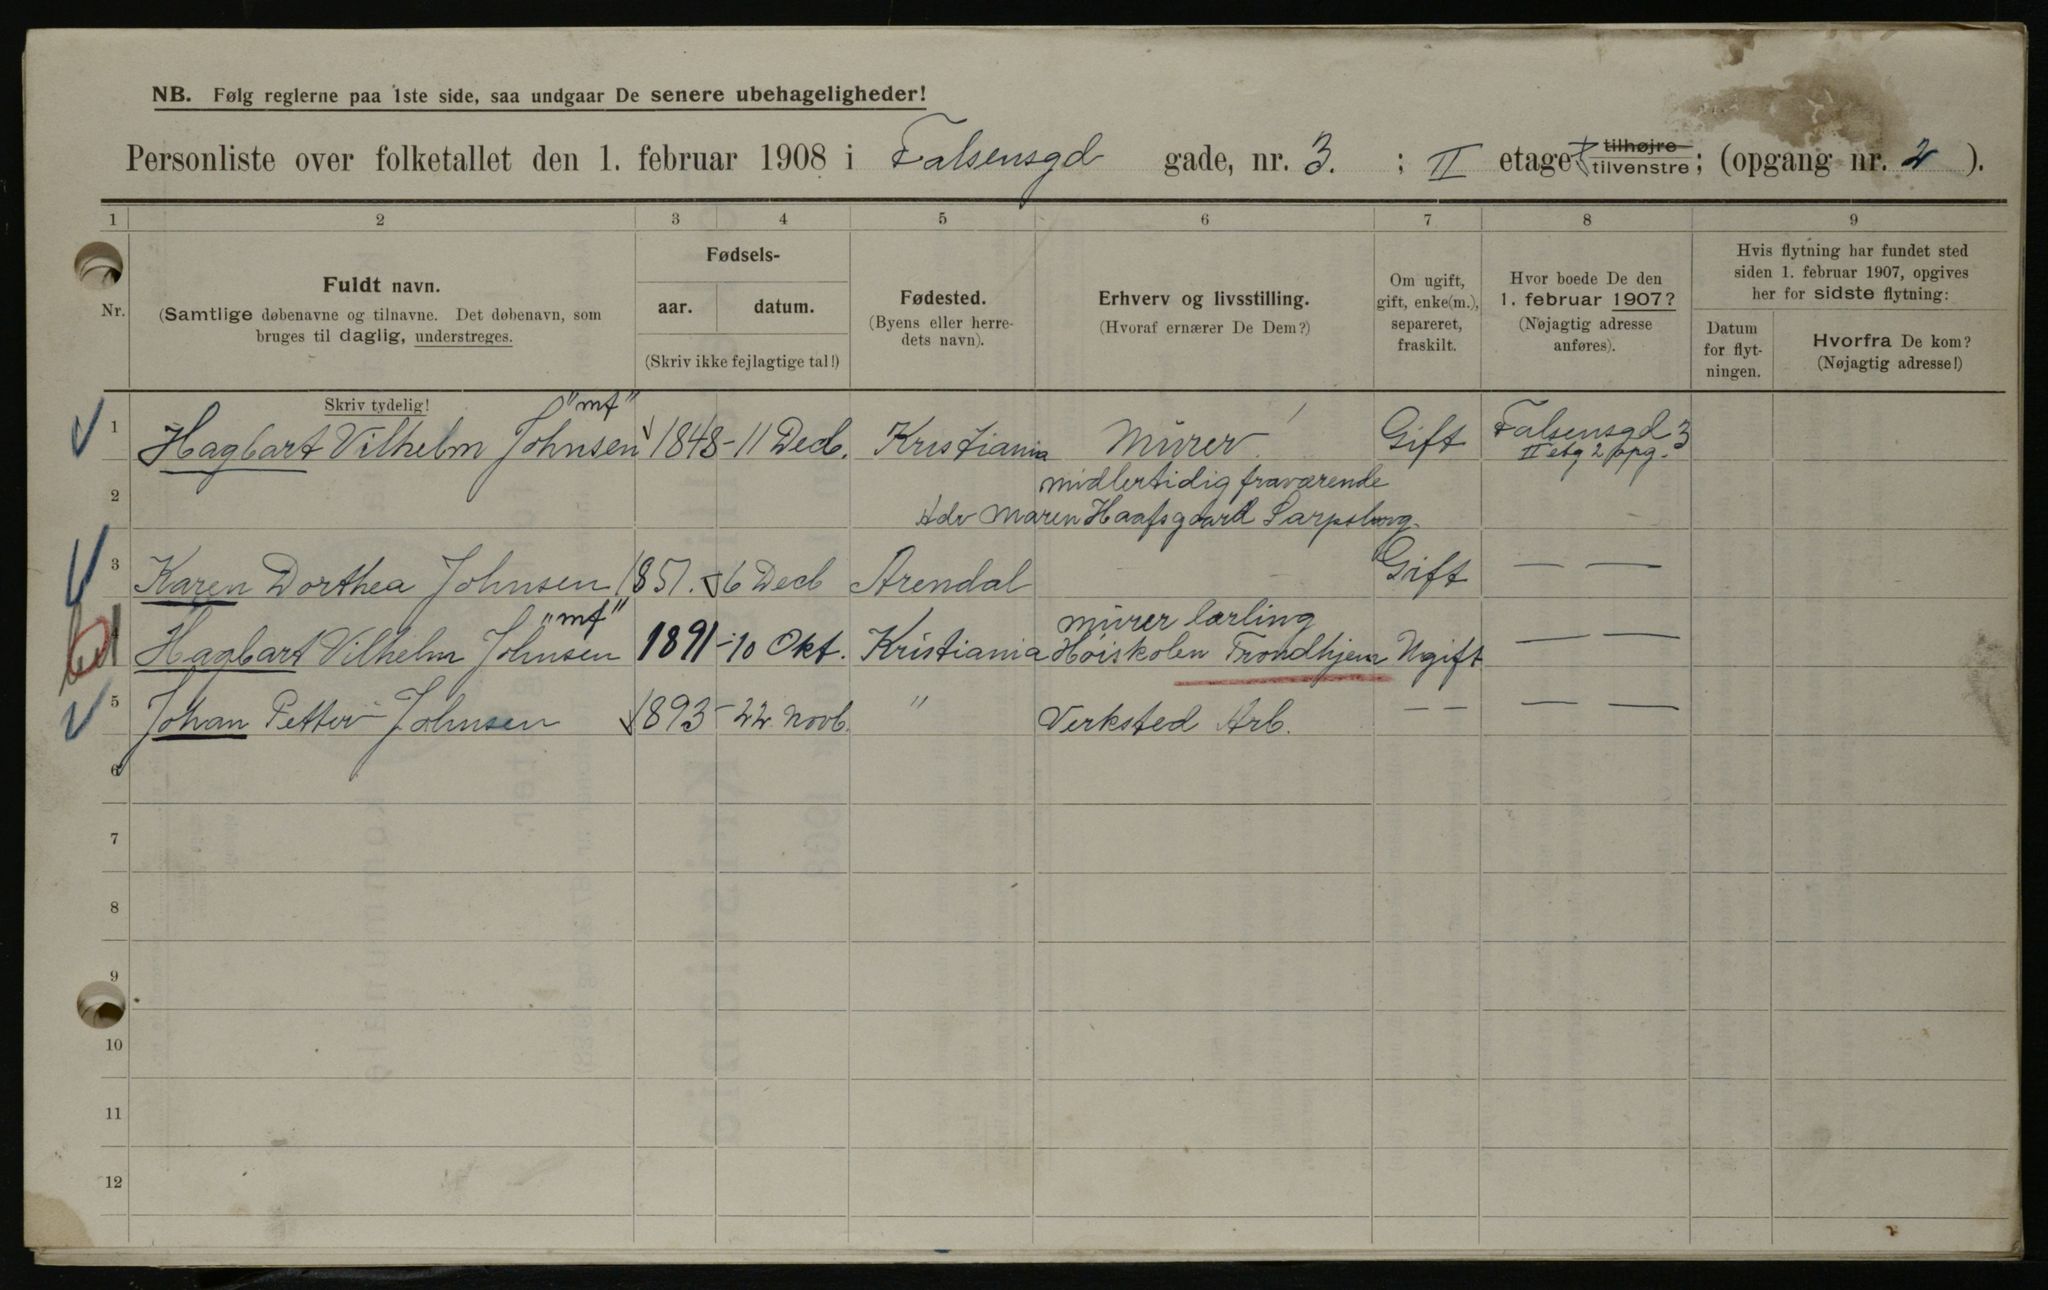 NB. Følg reglerne paa 1ste side, saa undgaar De senere ubehageligheder!
Personliste over folketallet den 1. februar 1908 i Falsensgd gade, nr. 3. ; II etage tilhøjre tilvenstre ; (opgang nr. 2 ).
1 2 3 4 5 6 7 8 9
Nr.
Fuldt navn.
(Samtlige døbenavne og tilnavne. Det døbenavn, som
bruges til daglig, understreges.
Skriv tydelig!
Fødsels-
aar. datum.
(Skriv ikke fejlagtige tal!)
Fødested.
(Byens eller herre-
dets navn).
Erhverv og livsstilling.
(Hvoraf ernærer De Dem?)
Om ugift,
gift, enke(m.),
separeret,
fraskilt.
Hvor boede De den
1. februar 1907?
(Nøjagtig adresse
anføres).
Hvis flytning har fundet sted
siden 1. februar 1907, opgives
her for sidste flytning:
Datum
for flyt-
ningen.
Hvorfra De kom?
(Nøjagtig adresse!)
1 Hagbart Vilhelm Johnsen "mf" 1848 - 11 Decb. Kristiania Murer Gift Falsensgd 3
II etg 2 opg.
2 midlertidig fraværende
Adr Maren Haafsgaard Sarpsborg.
3 Karen Dorthea Johnsen 1851. 6 Decb Arendal — — Gift — —
4 Hagbart Vilhelm Johnsen "mf" 1891 - 10 Okt. Kristiania murer lærling
Høiskolen Trondhjem Ugift — —
5 Johan Petter Johnsen 1893 - 22 Novb. " Verksted Arb. — — — —
6
7
8
9
10
11
12